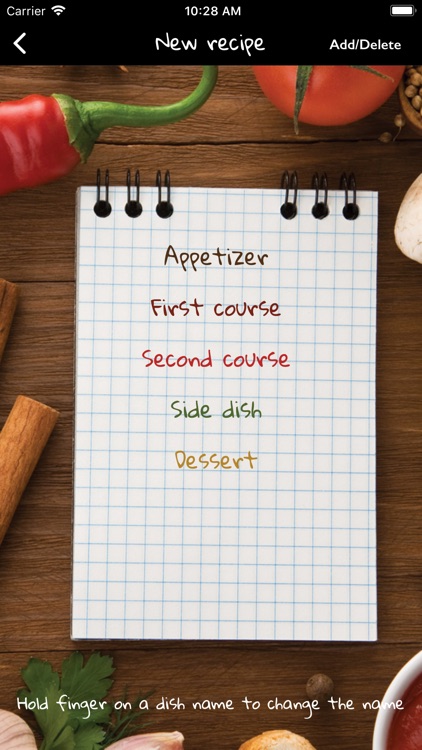 Carrier 10:28 AM
New recipe Add/Delete
Appetizer
First course
Second course
Side dish
Dessert
Hold finger on a dish name to change the name